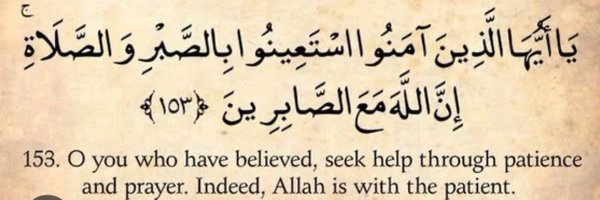 يَا أَيُّهَا الَّذِينَ آمَنُوا اسْتَعِينُوا بِالصَّبْرِ وَالصَّلَاةِ ۚ
إِنَّ اللَّهَ مَعَ الصَّابِرِينَ ﴿١٥٣﴾
153. O you who have believed, seek help through patience
and prayer. Indeed, Allah is with the patient.